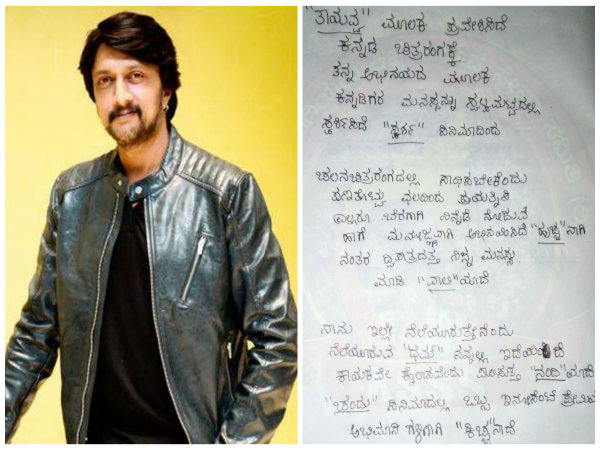 "ತಾಯವ್ವ" ಮೂಲಕ ಪ್ರವೇಶಿಸಿದೆ
ಕನ್ನಡ ಚಿತ್ರರಂಗಕ್ಕೆ
ತನ್ನ ಅಭಿನಯದ ಮೂಲಕ
ಕನ್ನಡಿಗರ ಮನಸ್ಸನ್ನು ಸ್ವಲ್ಪಮಟ್ಟದಲ್ಲಿ
ಸ್ಪರ್ಶಿಸಿದೆ "ಸ್ಪರ್ಶ" ಸಿನಿಮಾದಿಂದ
ಚಲನಚಿತ್ರರಂಗದಲ್ಲಿ ಸಾಧಿಸಬೇಕೆಂದು
ಪಣತೊಟ್ಟು ಛಲದಿಂದ ಪ್ರಯತ್ನಿಸಿ
ಎಲ್ಲರೂ ಬೆರಗಾಗಿ ನಿನ್ನೆಡೆ ನೋಡುವ
ಹಾಗೆ ಮನೋಜ್ಞವಾಗಿ ಅಭಿನಯಿಸಿದೆ "ಹುಚ್ಚ"ನಾಗಿ
ನಂತರ ದ್ವಿಪಾತ್ರದತ್ತ ನಿನ್ನ ಮನಸ್ಸು
ಮಾಡಿ "ವಾಲಿ"ಯಾದೆ
ನಾನು ಇಲ್ಲೇ ನೆಲೆಯೂರುತ್ತೇನೆಂದು
ನೆಲೆಯೂರುವ "ಧಮ್" ನನ್ನಲ್ಲಿ ಇದೆಯೆಂದೆ
ಕಾಯಕವೇ ಕೈಲಾಸವೆಂದು "ನಂದಿ"ಯಾದೆ
"ಚಂದು" ಸಿನಿಮಾದಲ್ಲಿ ಒಬ್ಬ ಇನೋಸೆಂಟ್
ಅಭಿಮಾನಿ ಗಳಿಗಾಗಿ "ಕಿಚ್ಚ"ನಾದೆ